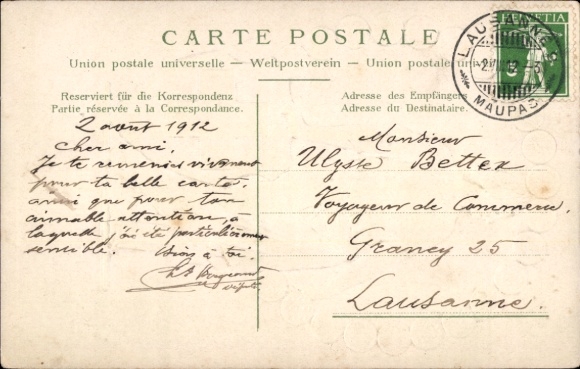 CARTE POSTALE
Union postale universelle – Weltpostverein – Union postale univers
Reserviert für die Korrespondenz
Partie réservée à la Correspondance.
2 aout 1912
Cher ami.
Je te remercie vivement
pour ta belle carte,
ainsi que pour ton
aimable attention, à
laquelle j'ai été particulièrement
sensible.
bien à toi.
Adresse des Empfängers
Adresse du Destinataire.
Monsieur
Ulysse Bettex
Voyageur de Commerce.
Grancy 25
Lausanne.
HELVETIA
5
LAUSANNE
MAUPAS